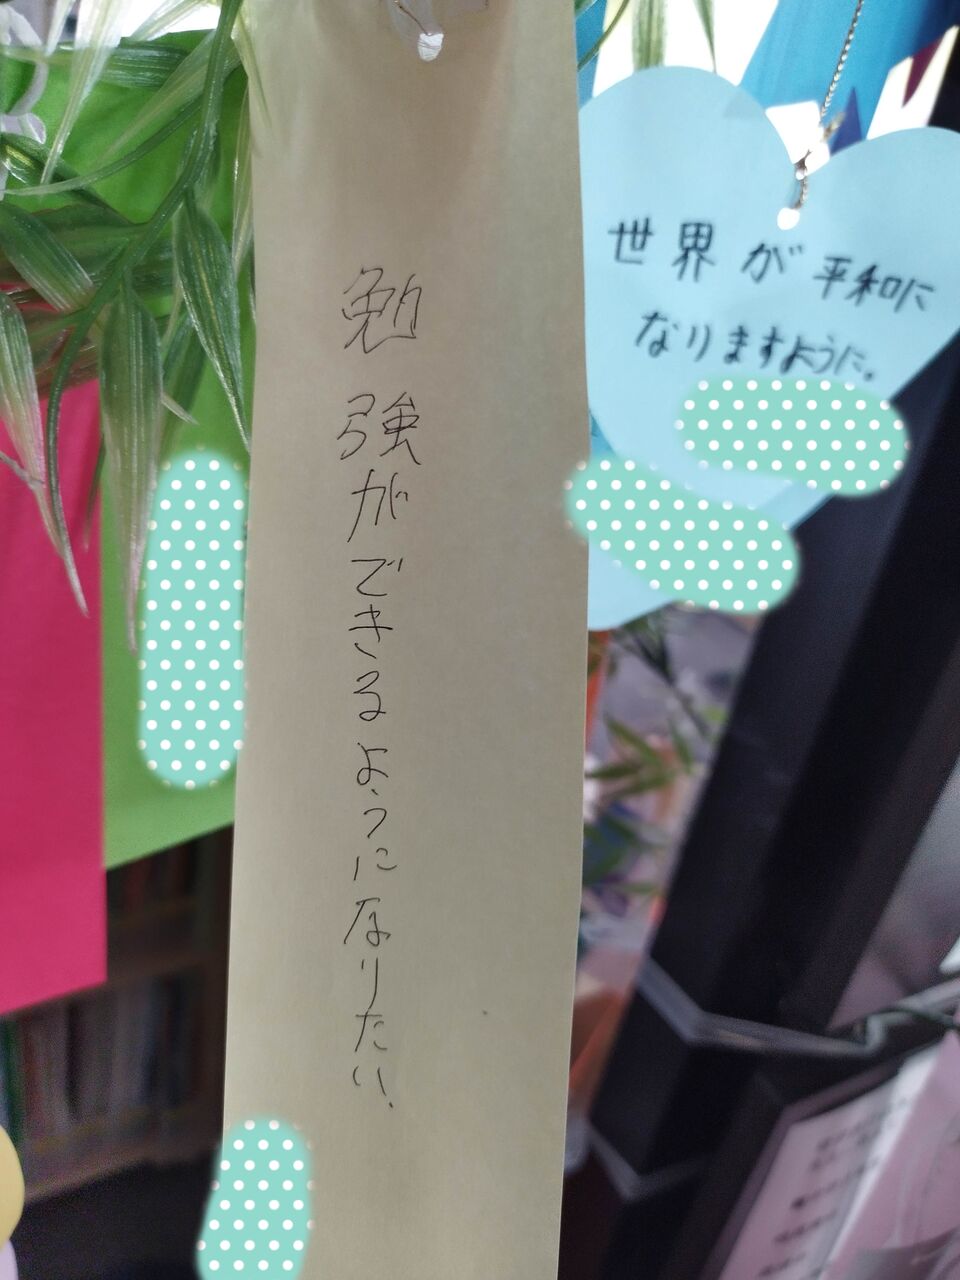 勉強ができるようになりたい.
世界が平和に
なりますように。